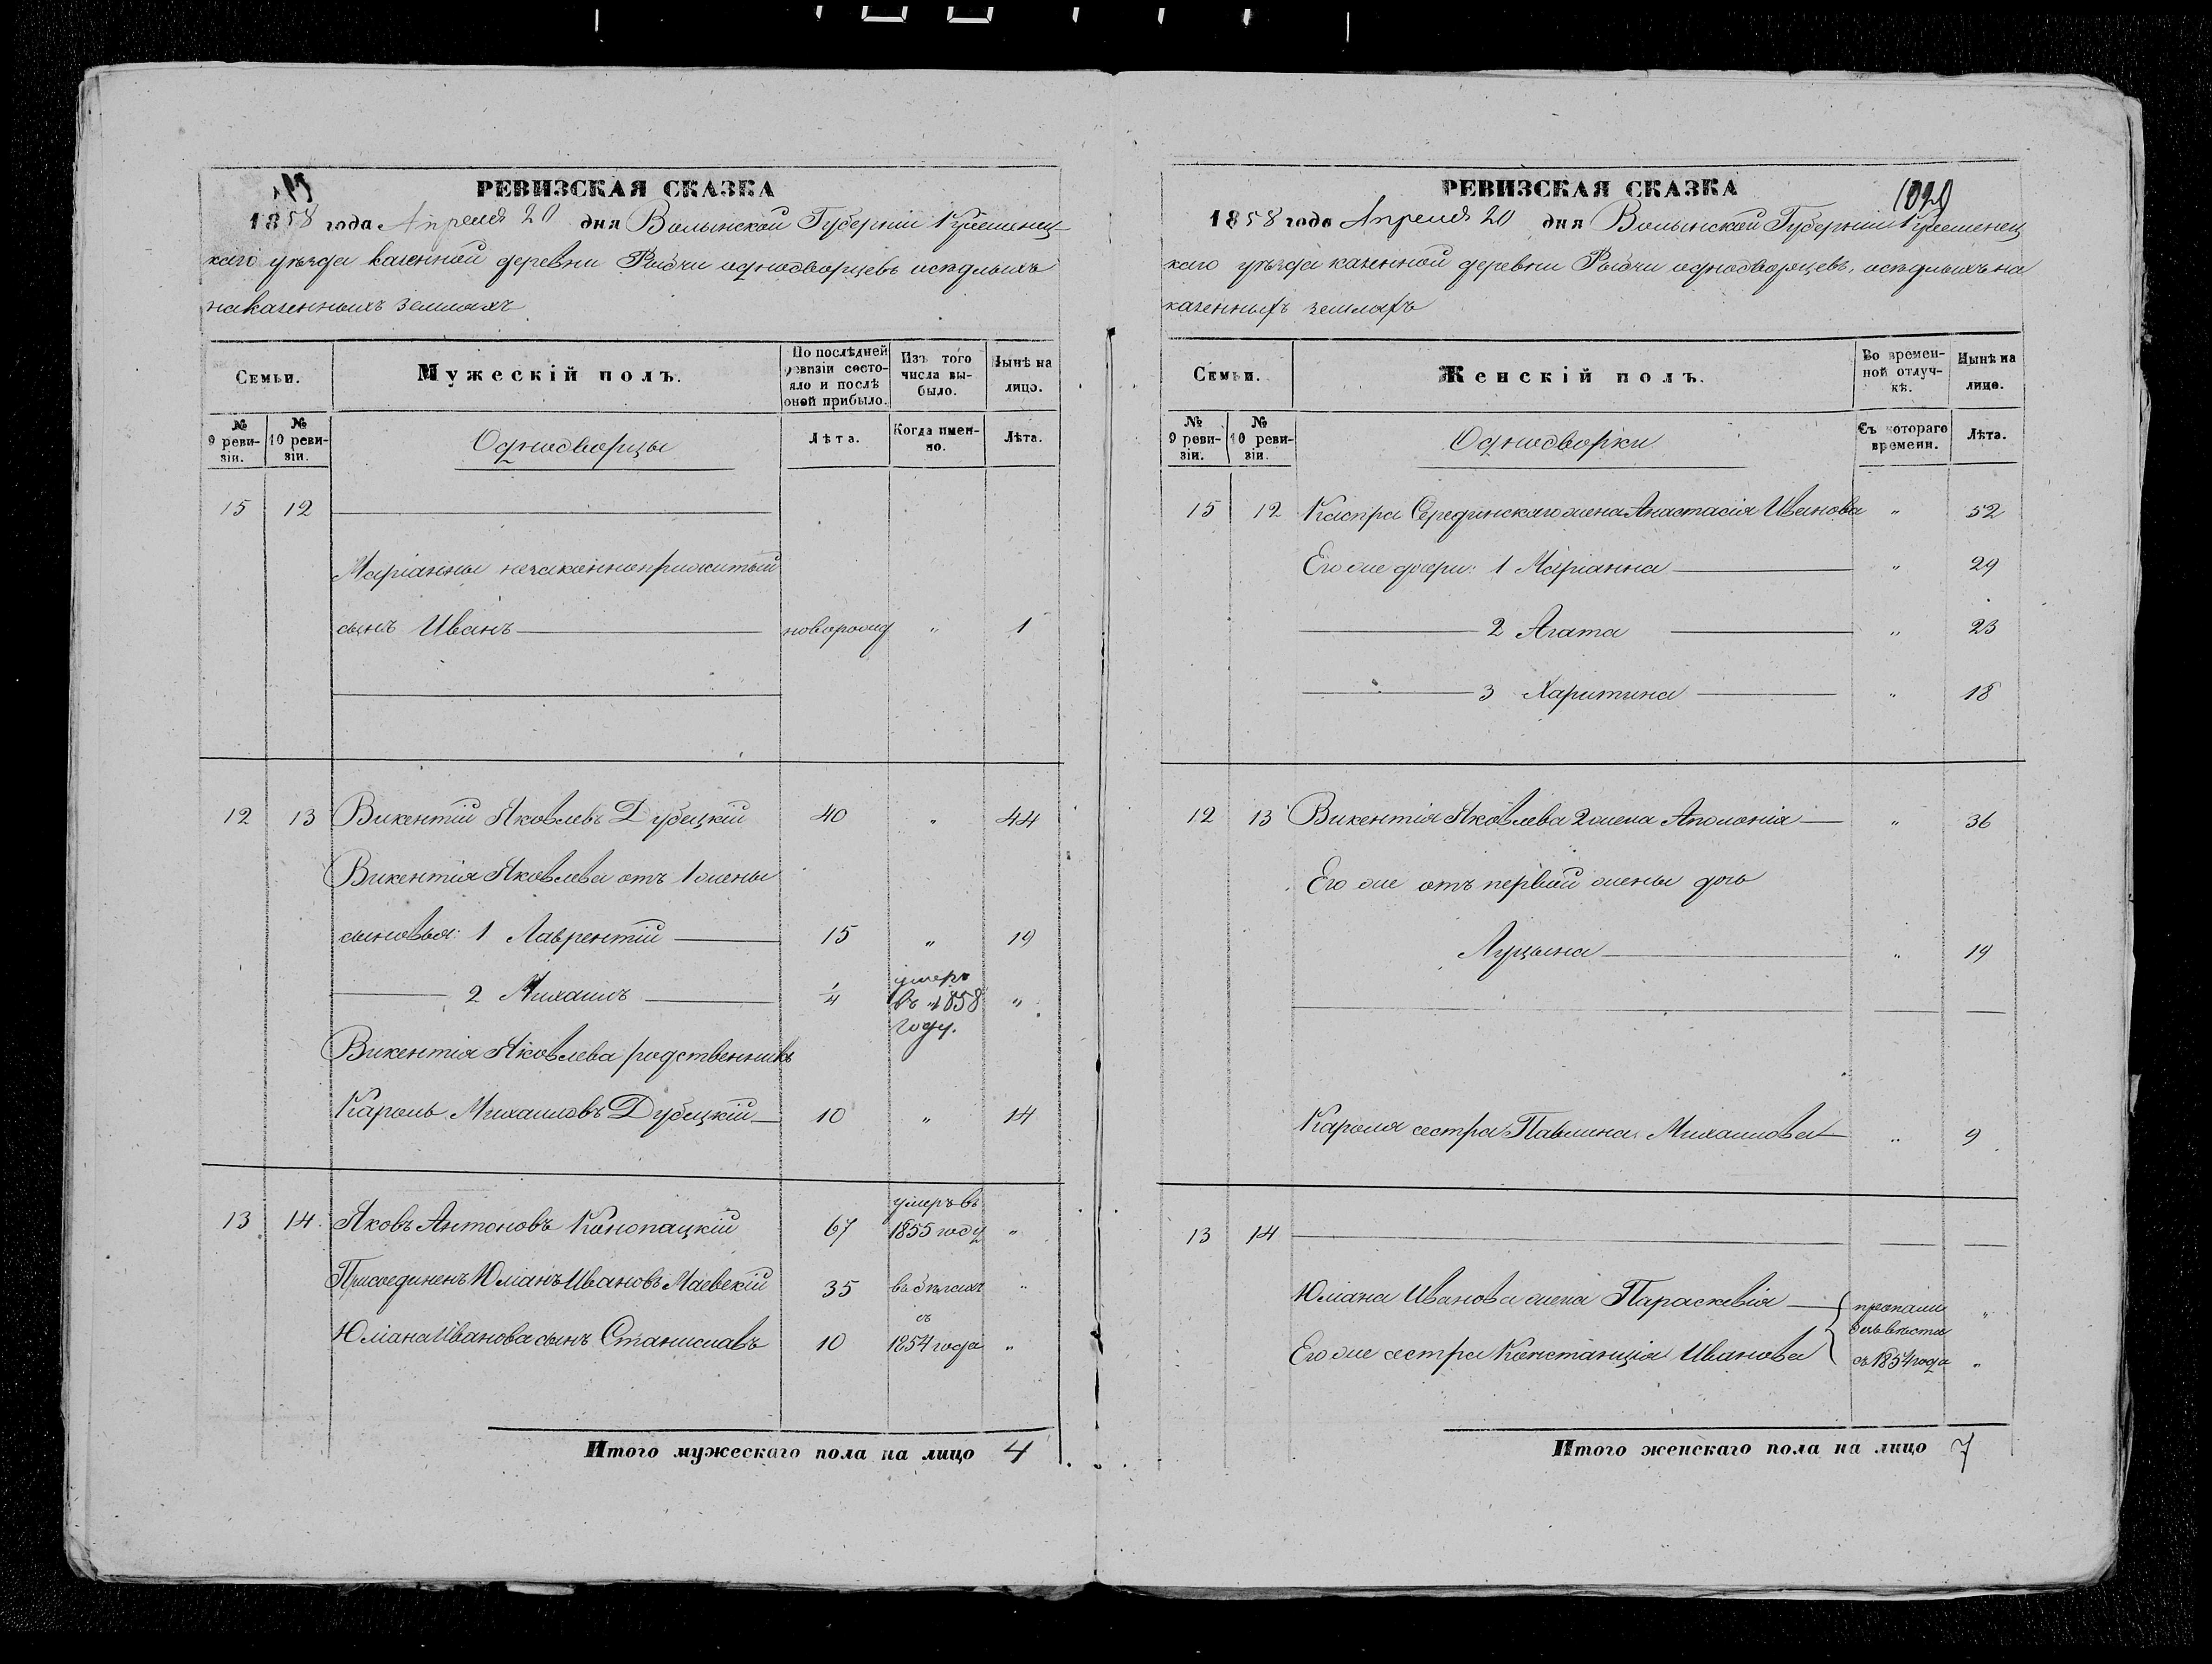 РЕВИЗСКАЯ СКАЗКА
1858 года Апреля 20 дня Волынской Губерніи Кременец-
каго уѣзда казенной деревни Рыдчи однодворцевъ осѣдлыхъ
на казенныхъ земляхъ
Семьи.
Мужескій полъ.
По послѣдней ревизіи состояло и послѣ оной прибыло.
Изъ того числа выбыло.
Нынѣ на лицо.
№ 9 ревизіи.
№ 10 ревизіи.
Однодворцы
Лѣта.
Когда именно.
Лѣта.
15 12
Маріанны незаконноприжитый
сынъ Иванъ новорожд „ 1
12 13 Викентій Яковлевъ Дубецкій 40 „ 44
Викентія Яковлева отъ 1 жены
сыновья: 1 Лаврентій 15 „ 19
2 Михаилъ 1/4 умеръ въ 1858 году. „
Викентія Яковлева родственникъ
Кароль Михаиловъ Дубецкій 10 „ 14
13 14 Яковъ Антоновъ Конопацкій 67 умеръ въ 1855 году „
Присоединенъ Юліанъ Ивановъ Маевскій 35 въ бѣгахъ „
Юліана Иванова сынъ Станиславъ 10 съ 1854 года „
Итого мужескаго пола на лицо 4
РЕВИЗСКАЯ СКАЗКА
1020
1858 года Апреля 20 дня Волынской Губерніи Кременец
каго уѣзда казенной деревни Рыдчи однодворцевъ, осѣдлыхъ на
казенныхъ земляхъ
Семьи.
Женскій полъ.
Во временной отлучкѣ.
Нынѣ на лицо.
№ 9 ревизіи.
№ 10 ревизіи.
Однодворки
Съ котораго времени.
Лѣта.
15 12 Каспра Серединскаго жена Анастасія Иванова „ 52
Его же дочери: 1 Маріанна „ 29
2 Агата „ 23
3 Харитина „ 18
12 13 Викентія Яковлева 2 жена Аполонія „ 36
Его же отъ первой жены дочь
Луцына „ 19
Кароля сестра Павлина Михаилова „ 9
13 14
Юліана Иванова жена Параскевія пропали „
безъ вѣсти
Его же сестра Констанція Иванова съ 1854 года „
Итого женскаго пола на лицо 7